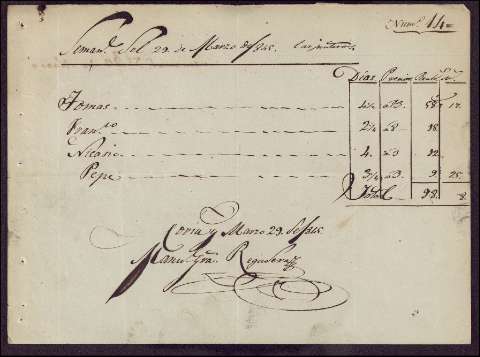 Num.º 14
Seman.ª del 29. de Marzo de 1845. Carpinteros
Dias. Precios Reale.s Mr.s
Tomas 4½ a 13. 58. 17.
Fran.co 2¼ a 8 18.
Nicasio 4. a 3 12.
Pepe 3¼ a 3. 9. 25.
Total 98. 8.
Coria y Marzo 29. de 1845.
Man.l Gra. Regadera